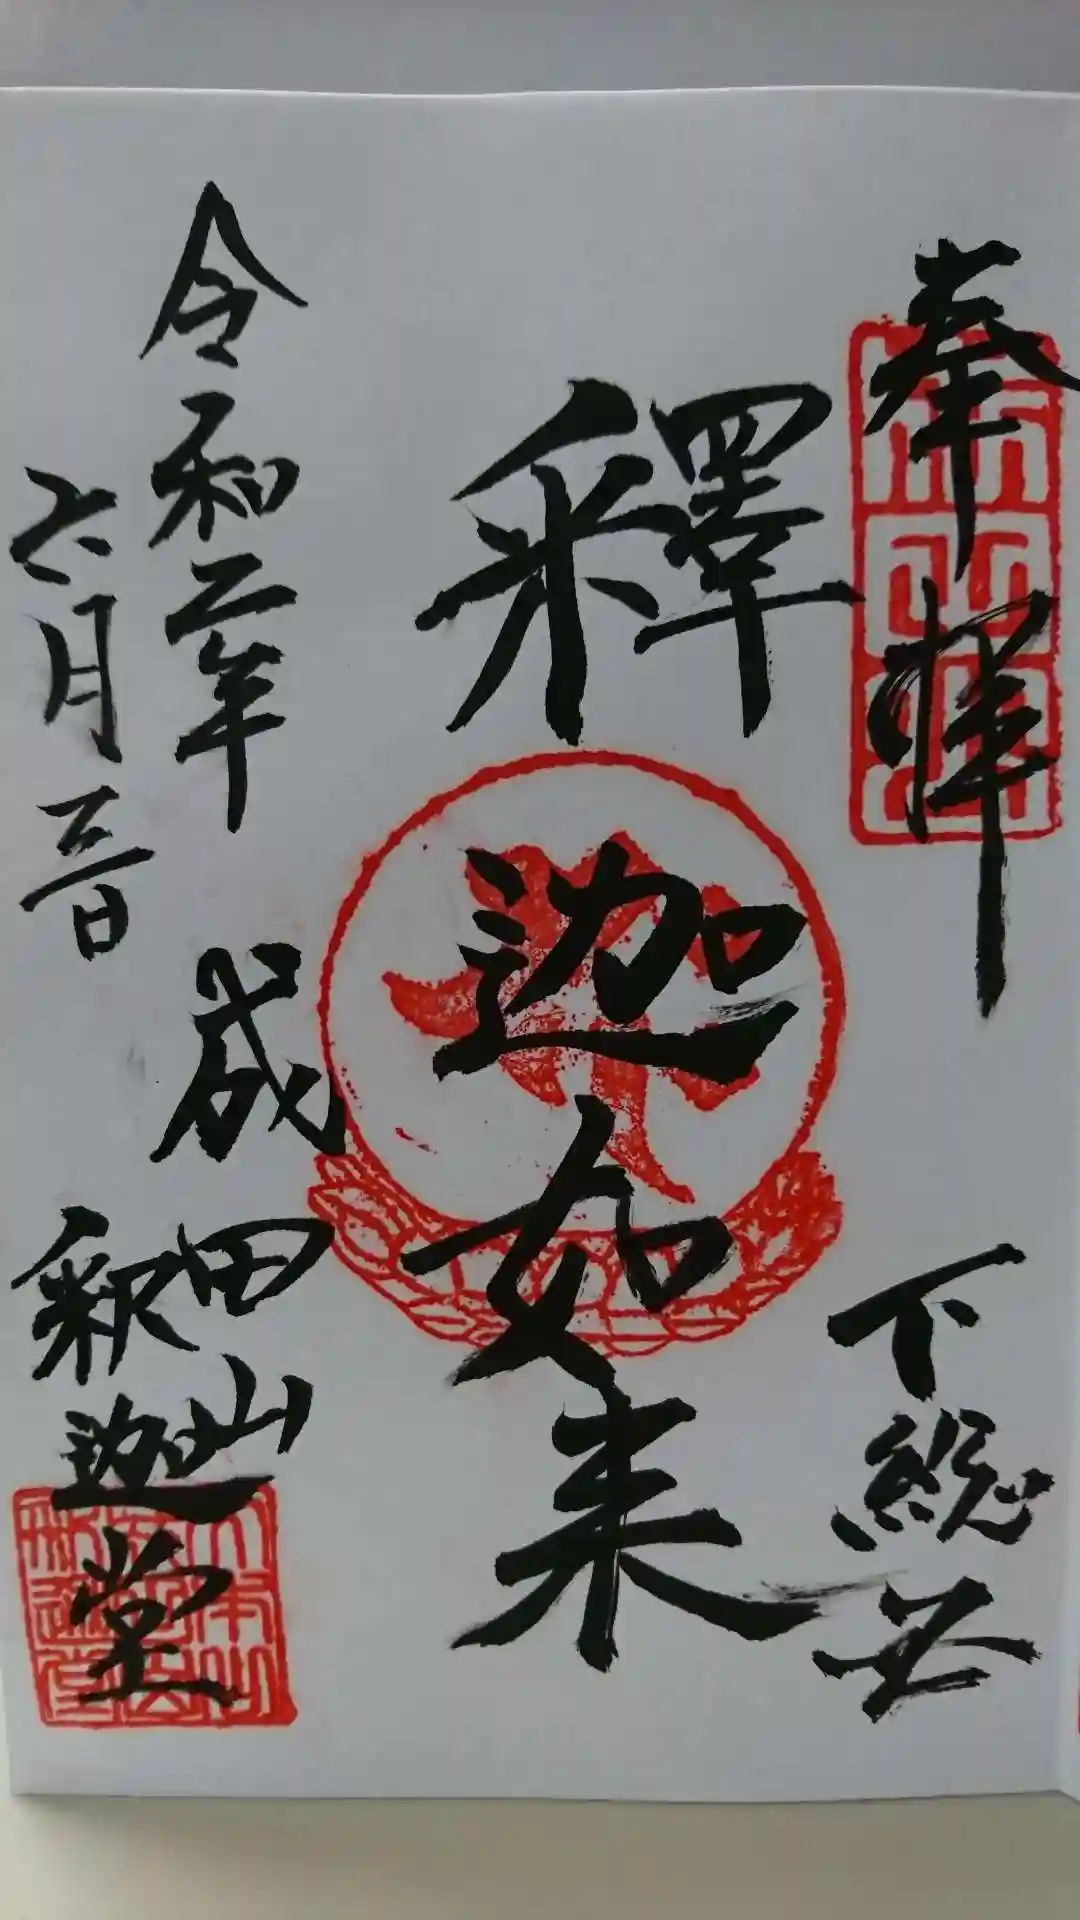 奉拝
下総国
釋迦如来
令和二年
六月三日
成田山
釈迦堂